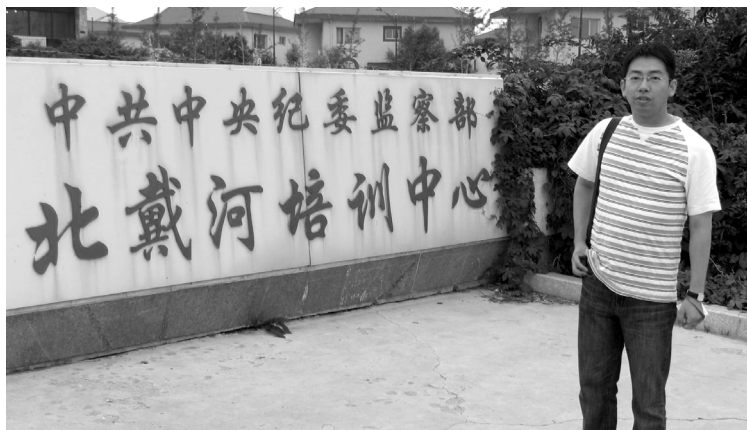 中共中央纪委监察部
北戴河培训中心